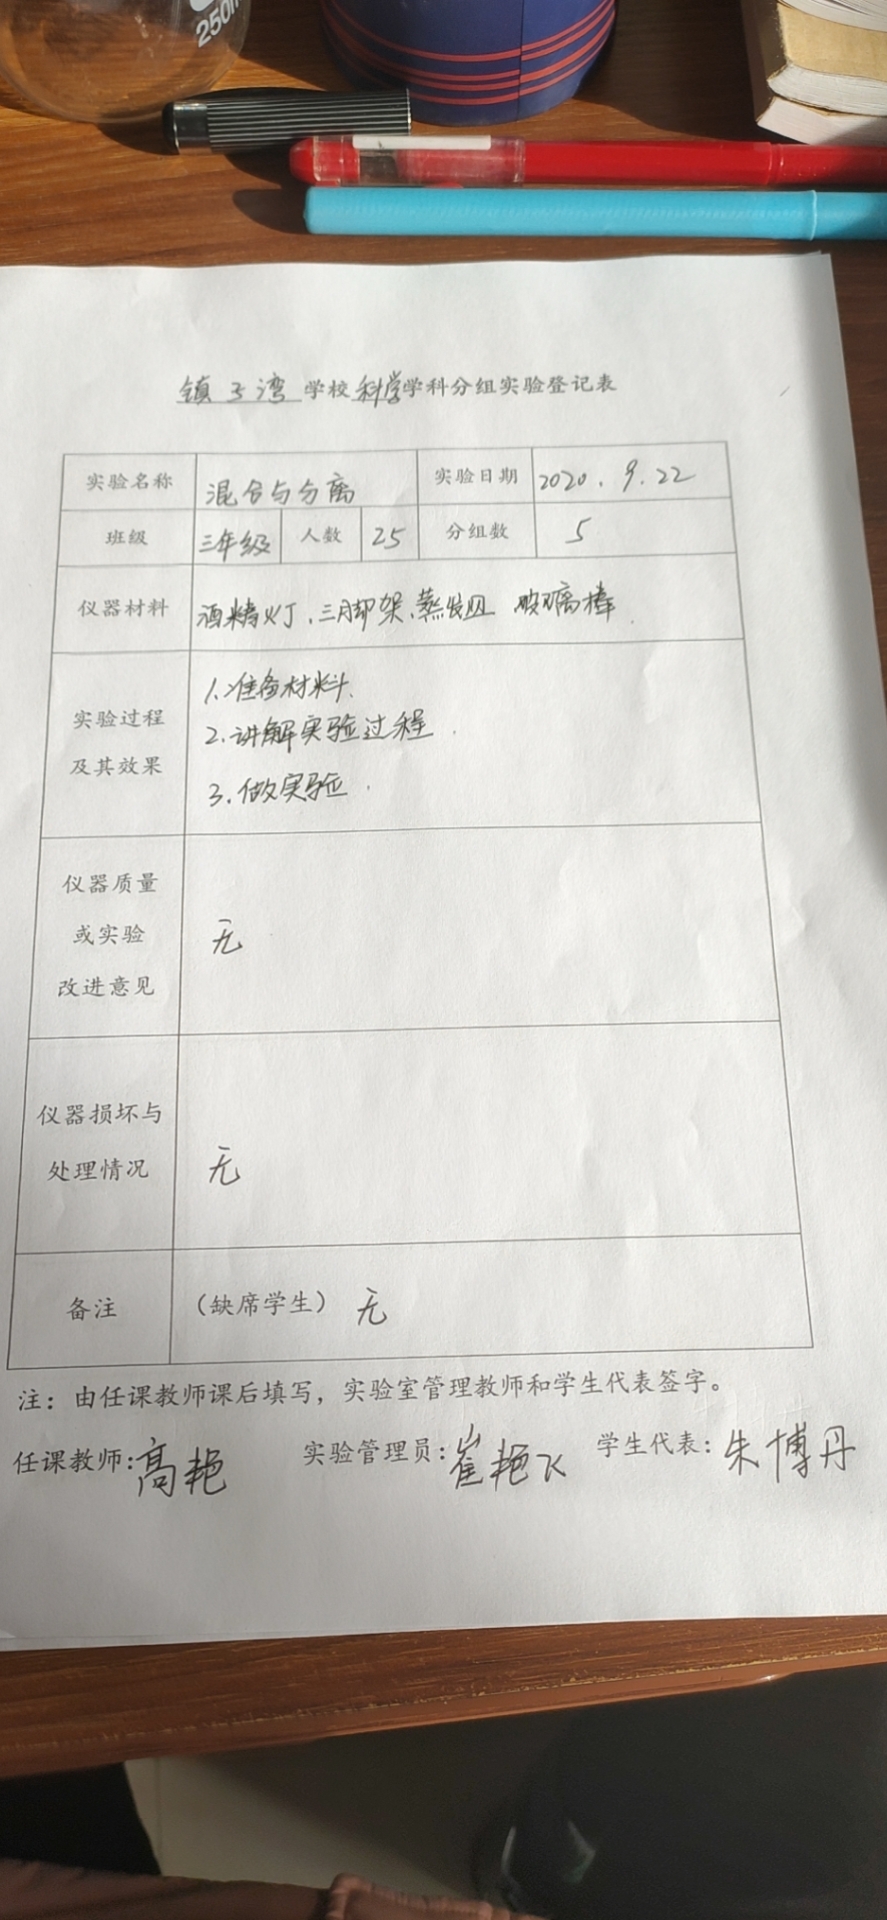 250m
镇子湾学校科学学科分组实验登记表
实验名称 混合与分离 实验日期 2020.9.22
班级 三年级 人数 25 分组数 5
仪器材料 酒精灯、三脚架、蒸发皿 玻璃棒.
实验过程
及其效果
1.准备材料.
2.讲解实验过程.
3.做实验.
仪器质量
或实验
改进意见
无
仪器损坏与
处理情况
无
备注 (缺席学生) 无
注：由任课教师课后填写，实验室管理教师和学生代表签字。
任课教师:高艳 实验管理员:崔艳飞 学生代表:朱博丹